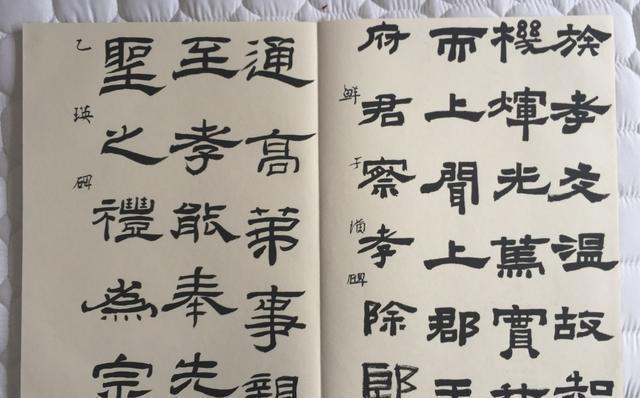 族孝友温故知
機煇光篤實
而上聞上郡王
府君察孝除郎
鲜于璜碑
通高第事親
至孝能奉先
聖之禮為宗
乙瑛碑